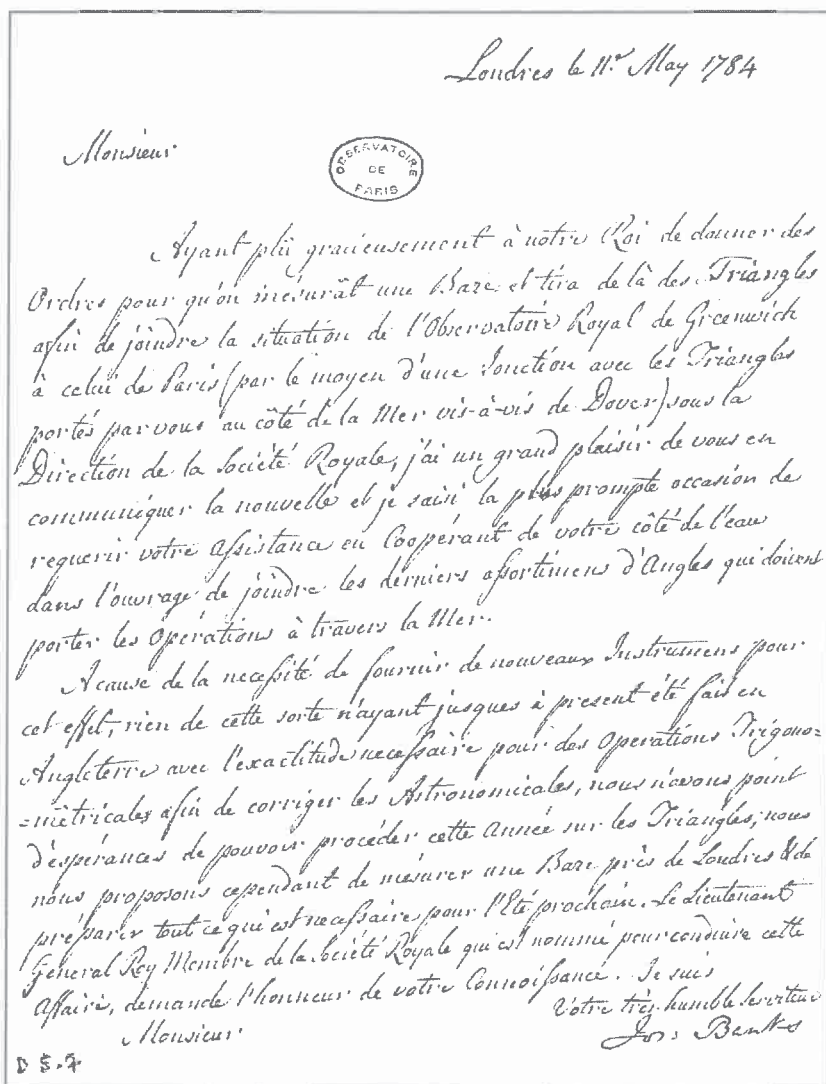 Londres le 11.e May 1784
Monsieur
OBSERVATOIRE
DE
PARIS
Ayant plû gracieusement à notre Roi de donner des
Ordres pour qu'on mésurât une Baze et tira de là des Triangles
afin de joindre la situation de l'Observatoire Royal de Greenwich
à celui de Paris (par le moyen d'une Jonction avec les Triangles
portés par vous au côté de la Mer vis-à-vis de Dover) sous la
Direction de la Société Royale, j'ai un grand plaisir de vous en
communiquer la nouvelle et je saisi la plus prompte occasion de
requerir votre Assistance en Coopérant de votre côté de l'eau
dans l'ouvrage de joindre les derniers assortimens d'Angles qui doivent
porter les Opérations à travers la Mer.
A cause de la necessité de fournir de nouveaux Instrumens pour
cet effet, rien de cette sorte n'ayant jusques à present été fait en
Angleterre avec l'exactitude necessaire pour des Operations Trigono=
=métricales afin de corriger les Astronomicales, nous n'avons point
d'espérances de pouvoir procéder cette Année sur les Triangles; nous
nous proposons cependant de mésurer une Baze près de Londres & de
préparer tout ce qui est necessaire pour l'Eté prochain. Le Lieutenant
General Roy Membre de la Société Royale qui est nommé pour conduire cette
Affaire, demande l'honneur de votre Connoissance. Je suis
Votre très humble Serviteur
Monsieur
Jos: Banks
D 5.7